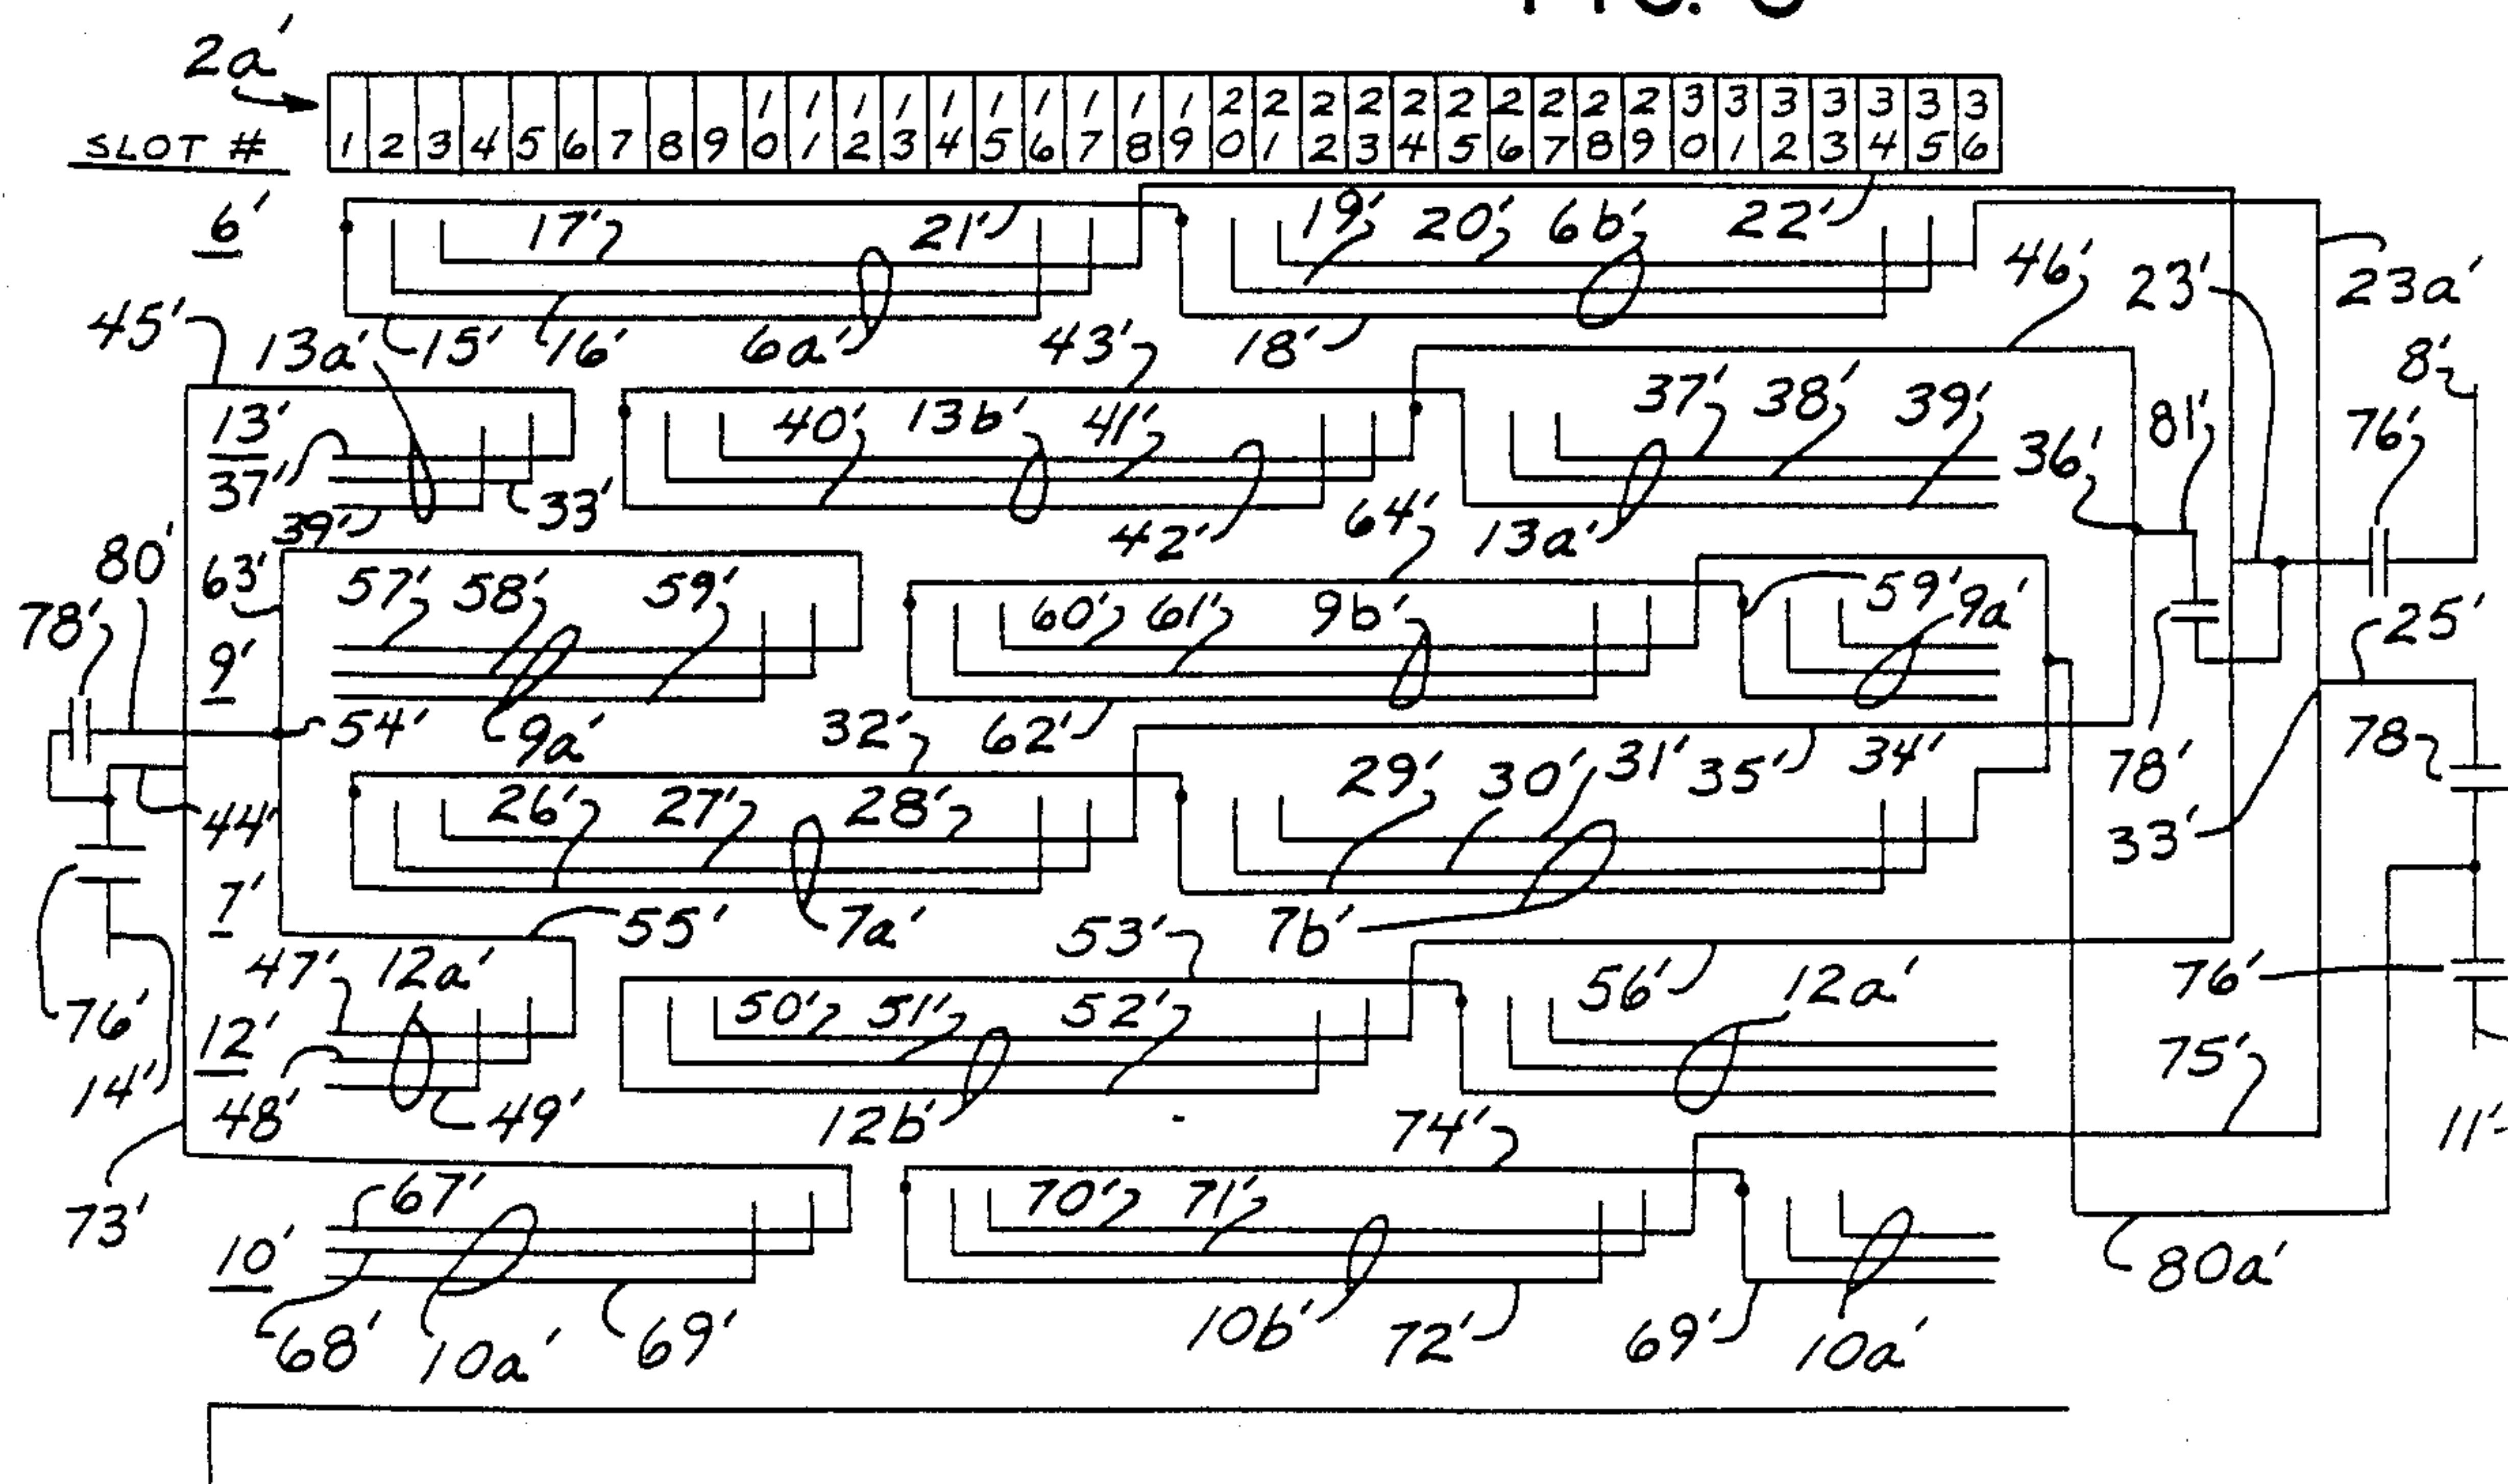 2a'
SLOT #
1 2 3 4 5 6 7 8 9 10 11 12 13 14 15 16 17 18 19 20 21 22 23 24 25 26 27 28 29 30 31 32 33 34 35 36
6' 17' 21' 19' 20' 6b' 22' 46' 23' 23a'
45' 13a' 15' 16' 6a' 43' 18' 8'
13' 40' 13b' 41' 37' 38' 39' 36' 81' 76'
37' 39' 33' 42' 64' 13a'
80' 63' 57' 58' 59' 60' 61' 9b' 59' 9a' 25'
78' 9' 54' 9a' 32' 62' 29' 30' 31' 35' 34' 78' 78
44' 26' 27' 28' 33'
7' 55' 7a' 53' 7b'
47' 12a' 50' 51' 52' 56' 12a' 76'
76' 12' 75'
14' 48' 49' 12b' 74' 11'
73' 67' 70' 71'
10' 80a'
68' 10a' 69' 10b' 72' 69' 10a'